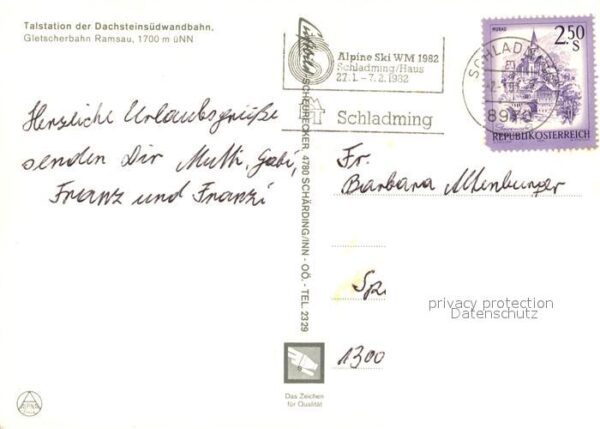 Talstation der Dachsteinsüdwandbahn,
Gletscherbahn Ramsau, 1700 m üNN
Alpine Ski WM 1982
Schladming/Haus
27.1. - 7.2.1982
Schladming
MURAU
2.50
S
REPUBLIK ÖSTERREICH
Herzliche Urlaubsgrüße
senden Dir Mutti, Gabi,
Franz und Franzi
SCHÄRDING/INN - OÖ. - TEL. 2329
Fr.
Barbara Altenburger
1300
privacy protection
Datenschutz
Das Zeichen
für Qualität